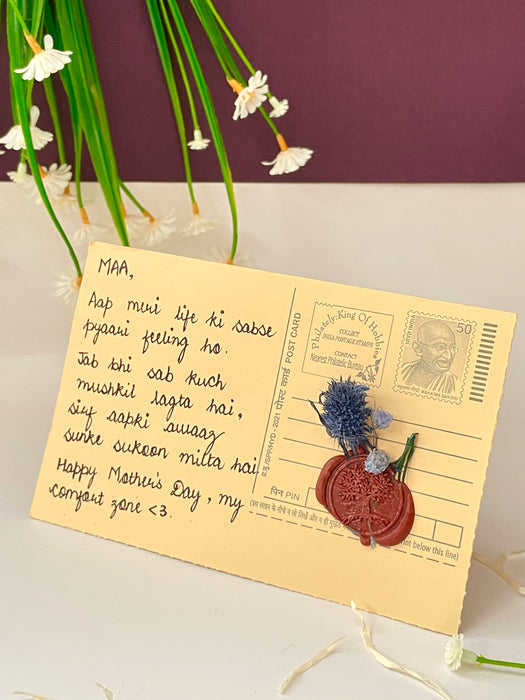 MAA,
Aap meri life ki sabse
pyaari feeling ho.
Jab bhi sab kuch
mushkil lagta hai,
sirf aapki awaaz
sunke sukoon milta hai
Happy Mother's Day, my
comfort zone <3.
पोस्ट कार्ड POST CARD
Philately: King Of Hobbies
COLLECT
INDIA POSTAGE STAMPS
CONTACT
Nearest Philatelic Bureau
भारत INDIA
50
महात्मा गांधी MAHATMA GANDHI
प्र.मु./SPP/HYD - 2021
पिन PIN
(इस लाइन के नीचे न तो लिखें और न ही
nt below this line)